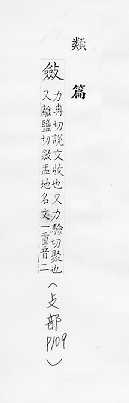 類篇
斂
力冉切說文收也又力驗切聚也
又離鹽切斂盂地名文一重音二
(攴部 P109)